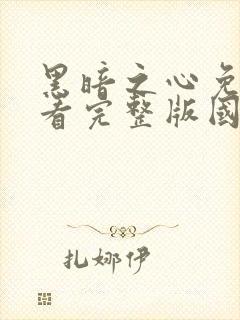 黑暗之心免
看完整版國
扎娜伊